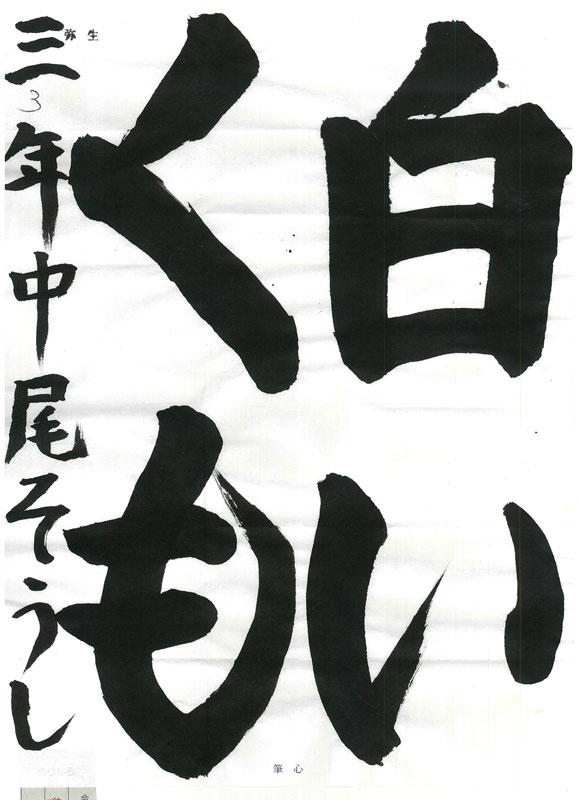 白い
くも
三年中尾そうし
3
弥生
筆心
のりしろ